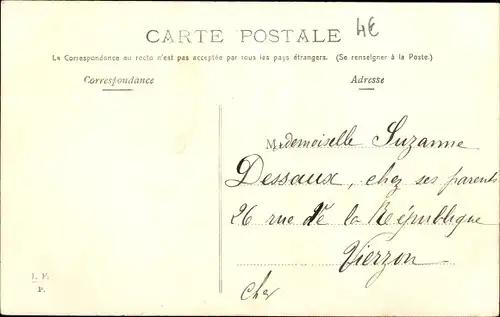 CARTE POSTALE 4€
La Correspondance au recto n'est pas acceptée par tous les pays étrangers. (Se renseigner à la Poste.)
Correspondance Adresse
Mademoiselle Suzanne
Dessaux, chez ses parents
26 rue de la République
Vierzon
Cher